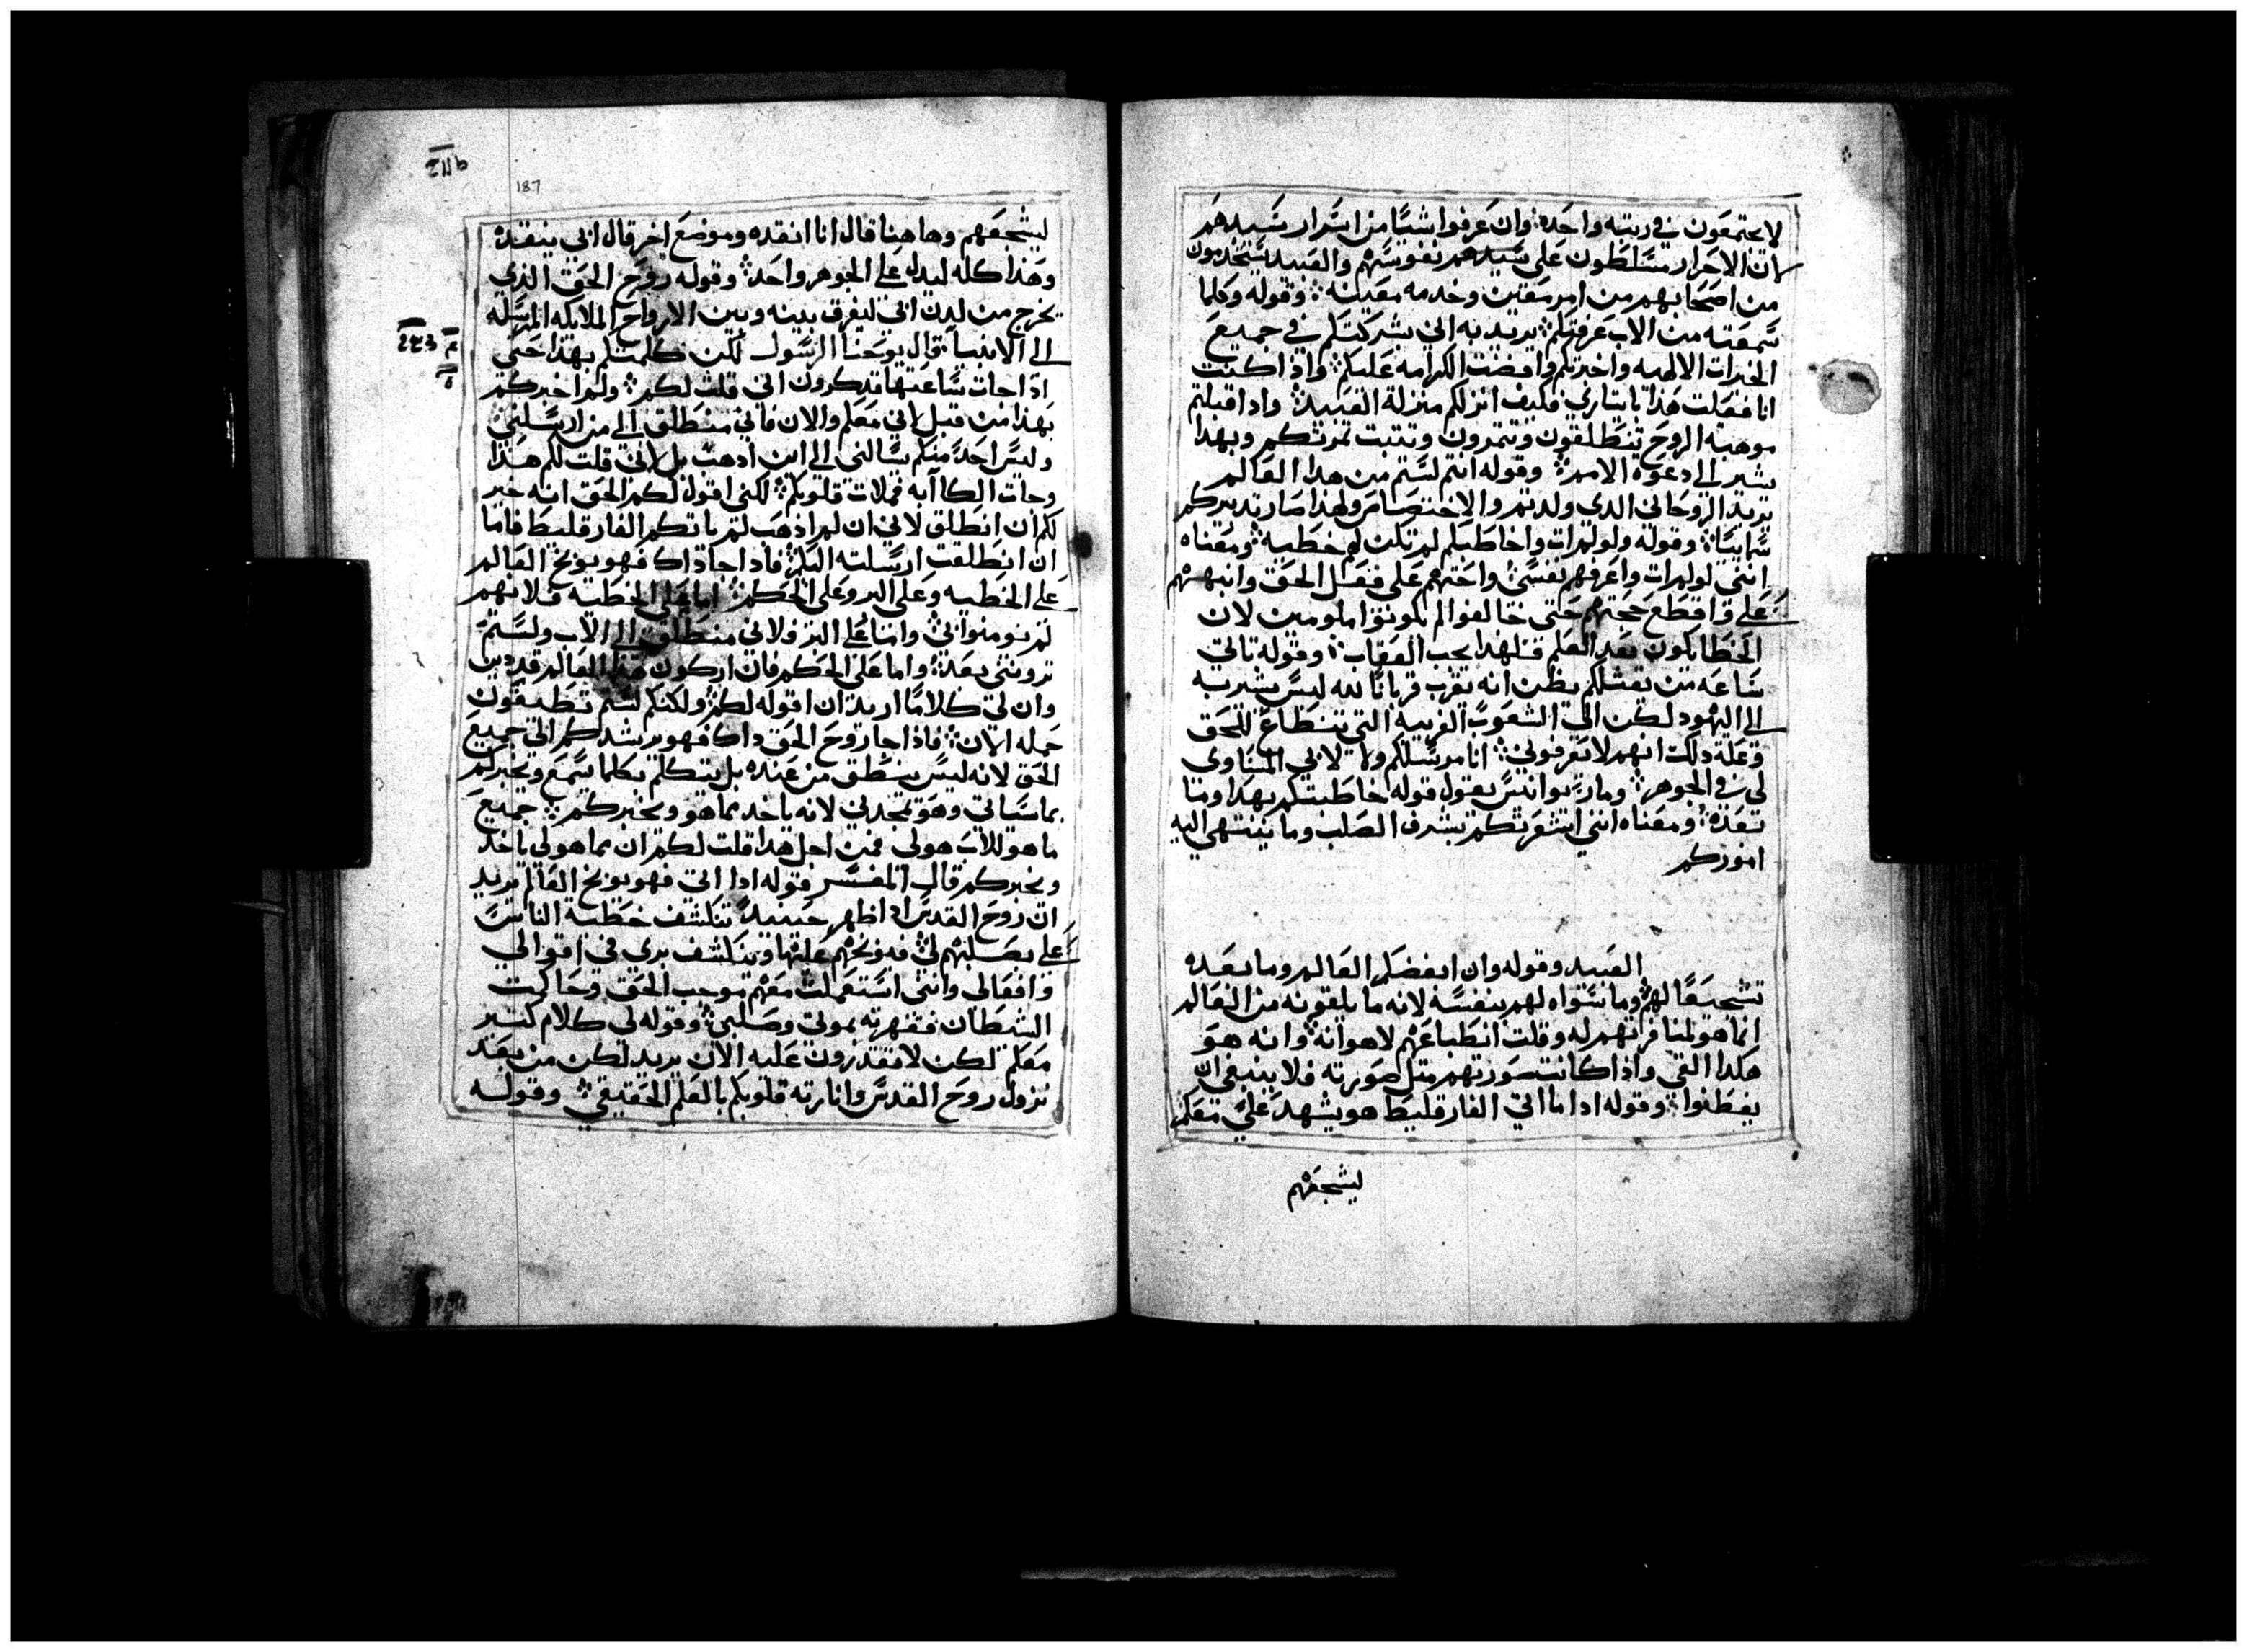 لا يجتمعون في رتبه واحده؛ وان عرفوا شيًا من اسرار سيدهم
لان الاحرار مسلطون على سيدهم نفوسهم والعبيد يستخدمون
من اصحابهم من امر معين وخدمه معينه؛ وقوله وكلما
سمعته من الاب عرفتكم؛ يريد به اني شركتكم في جميع
الخيرات الالهيه واخبرتكم وافضت الكرامه عليكم؛ واذا كنت
انا فعلت هذا بايتاري فكيف انزلكم منزلة العبيد؛ واذا قبلتم
موهبه الروح تنطلقون وتتمرون وتتبت تمرتكم وبهذا
يشير الى دعوة الامم؛ وقوله انتم لستم من هدا العالم
يريد الروحاني الدى ولدتم والاختصاص ولهذا صار تدبيركم
سماييًا؛ وقوله ولو لم ات واخاطبكم لم تكن لهم خطيه؛ ومعناه
انني لو لم ات واعرفهم نفسي واحتهم على فعل الحق وانبههم
على واقطع حجتهم حتى خالفوا لم يكونوا ملومين لان
الخطا يكون بعد العلم فلهدا يجب العقاب؛ وقوله تاتي
ساعه من يقتلكم يظن انه يقرب قربانًا لله ليس يشير به
الى اليهود لكن الى الشعوب الغريبه التي تنطاع للحق
وعلة دلك انهم لا يعرفوني؛ انا مرسلكم ولا لابي المساوى
لي في الجوهر؛ ومار يوانيس يقول قوله خاطبتكم بهدا وما
بعده؛ ومعناه انني اشعرتكم بشرف الصلب وما ينتهي اليه
اموركم
العبيد وقوله وان ابغضكم العالم وما بعده
تشجيعًا لهم؛ وما سواه لهم بنفسه لانه ما يلقونه من العالم
انما هو لمنافرتهم له وقلت انطباعهم لاهوانه؛ وانه هو
هكدا لقي واذا كانت صورتهم متل صورته فلا ينبغي ان
يغطنوا؛ وقوله ادا ما اتى الفارقليط هو يشهد علي معكم
ليشجعهم
187
ليشجعهم وهاهنا قال انا انفده وموضع اخر قال ابي ينفده
وهذا كله ليدل على الجوهر واحد؛ وقوله روح الحق الذي
يخرج من لدن ابي ليفرق بينه وبين الارواح الملايكه المرسله
الى الانبيا؛ قال يوحنا الرسول لكن كلمتكم بهذا حتى
اذا جات ساعتها تدكرون اني قلت لكم؛ ولم اخبركم
بهذا من قبل لاني معكم والان فاني منطلق الى من ارسلني
وليس احدً منكم يسالني الى اين ادهب بل لاني قلت لكم هذا
وجات الكاآبه فملات قلوبكم؛ لكني اقول لكم الحق انه خير
لكم ان انطلق لاني ان لم اذهب لم ياتكم الفارقليط فاما
ان انطلقت ارسلته اليكم؛ فاداجا داك فهو يوبخ العالم
على الخطيه وعلى البر وعلى الحكم؛ اما على الخطيه فلانهم
لم يومنوا بي؛ واما على البر فلاني منطلق الى الاب ولستم
تروني بعد؛ واما على الحكم فان اركون هذا العالم قد دين
وان لي كلامًا اريد ان اقوله لكم؛ ولكنكم لستم تطيقون
حمله الان؛ فاذا جا روح الحق داك فهو يرشدكم الى جميع
الحق لانه ليس ينطق من عنده بل يتكلم بكلما يسمع ويخبركم
بما سياتي وهو يمجدني لانه ياخد مما هو ويخبركم؛ جميع
ما هو للاب هو لي فمن اجل هدا قلت لكم ان مما هو لي ياخد
ويخبركم قال المفسر قوله ادا اتى فهو يوبخ العالم يريد
ان روح القدس ادا ظهر حينيدً تنكشف خطيه الناس
على بصلبهم لي؛ فيوبخهم عليها وينكشف بري في اقوالي
وافعالي وانني استعملت معهم موجب الحق وحاكمت
الشيطان فقهرته بموتي وصلبي؛ وقوله لي كلام كتير
معكم لكن لا تقدرون عليه الان يريد لكن من بعد
نزول روح القدس وانارته قلوبكم بالعلم الحقيقي؛ وقوله